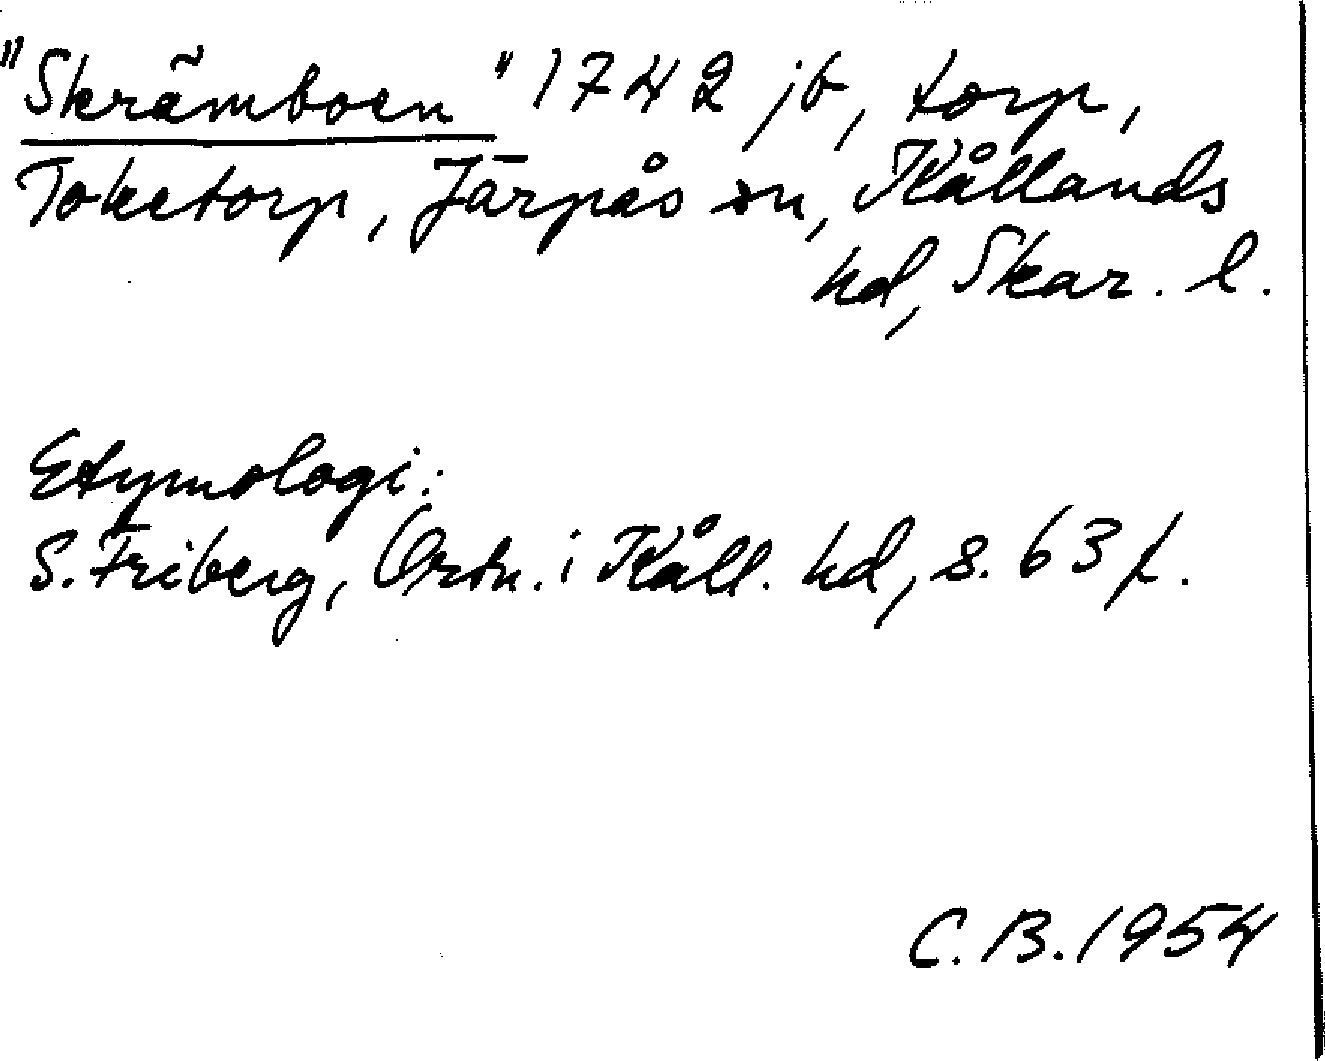 "Skrämboen" 1742 jb, torp,
Toketorp, Järpås sn, Kållands
hd, Skar. l.
Etymologi:
S. Friberg, Ortn. i Kåll. hd, s. 63 f.
C. B. 1954